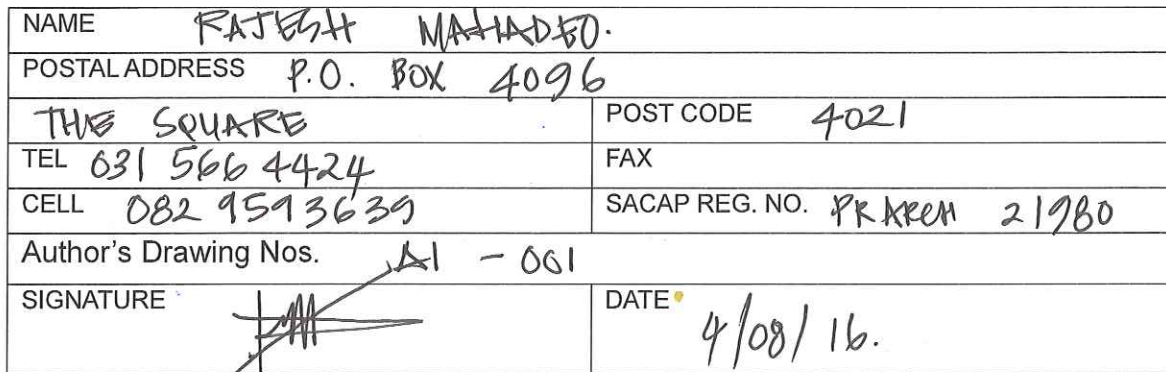 NAME RAJESH MAHADEO.
POSTAL ADDRESS P.O. BOX 4096
THE SQUARE POST CODE 4021
TEL 031 566 4424 FAX
CELL 082 9593639 SACAP REG. NO. PR ARCH 21980
Author's Drawing Nos. A1 - 001
SIGNATURE DATE 4/08/16.